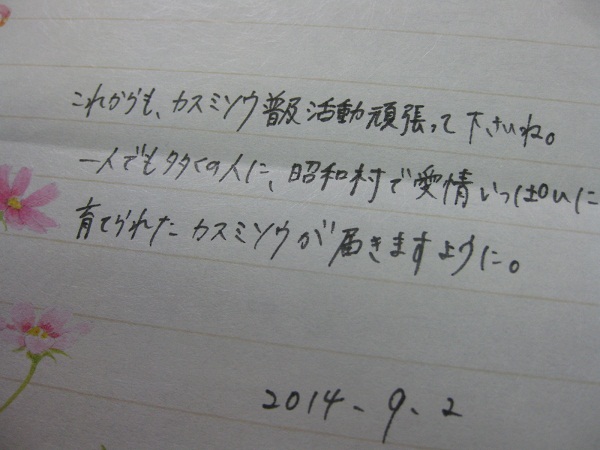 これからも、カスミソウ普及活動頑張って下さいね。
一人でも多くの人に、昭和村で愛情いっぱいに
育てられたカスミソウが届きますように。
2014、9、2